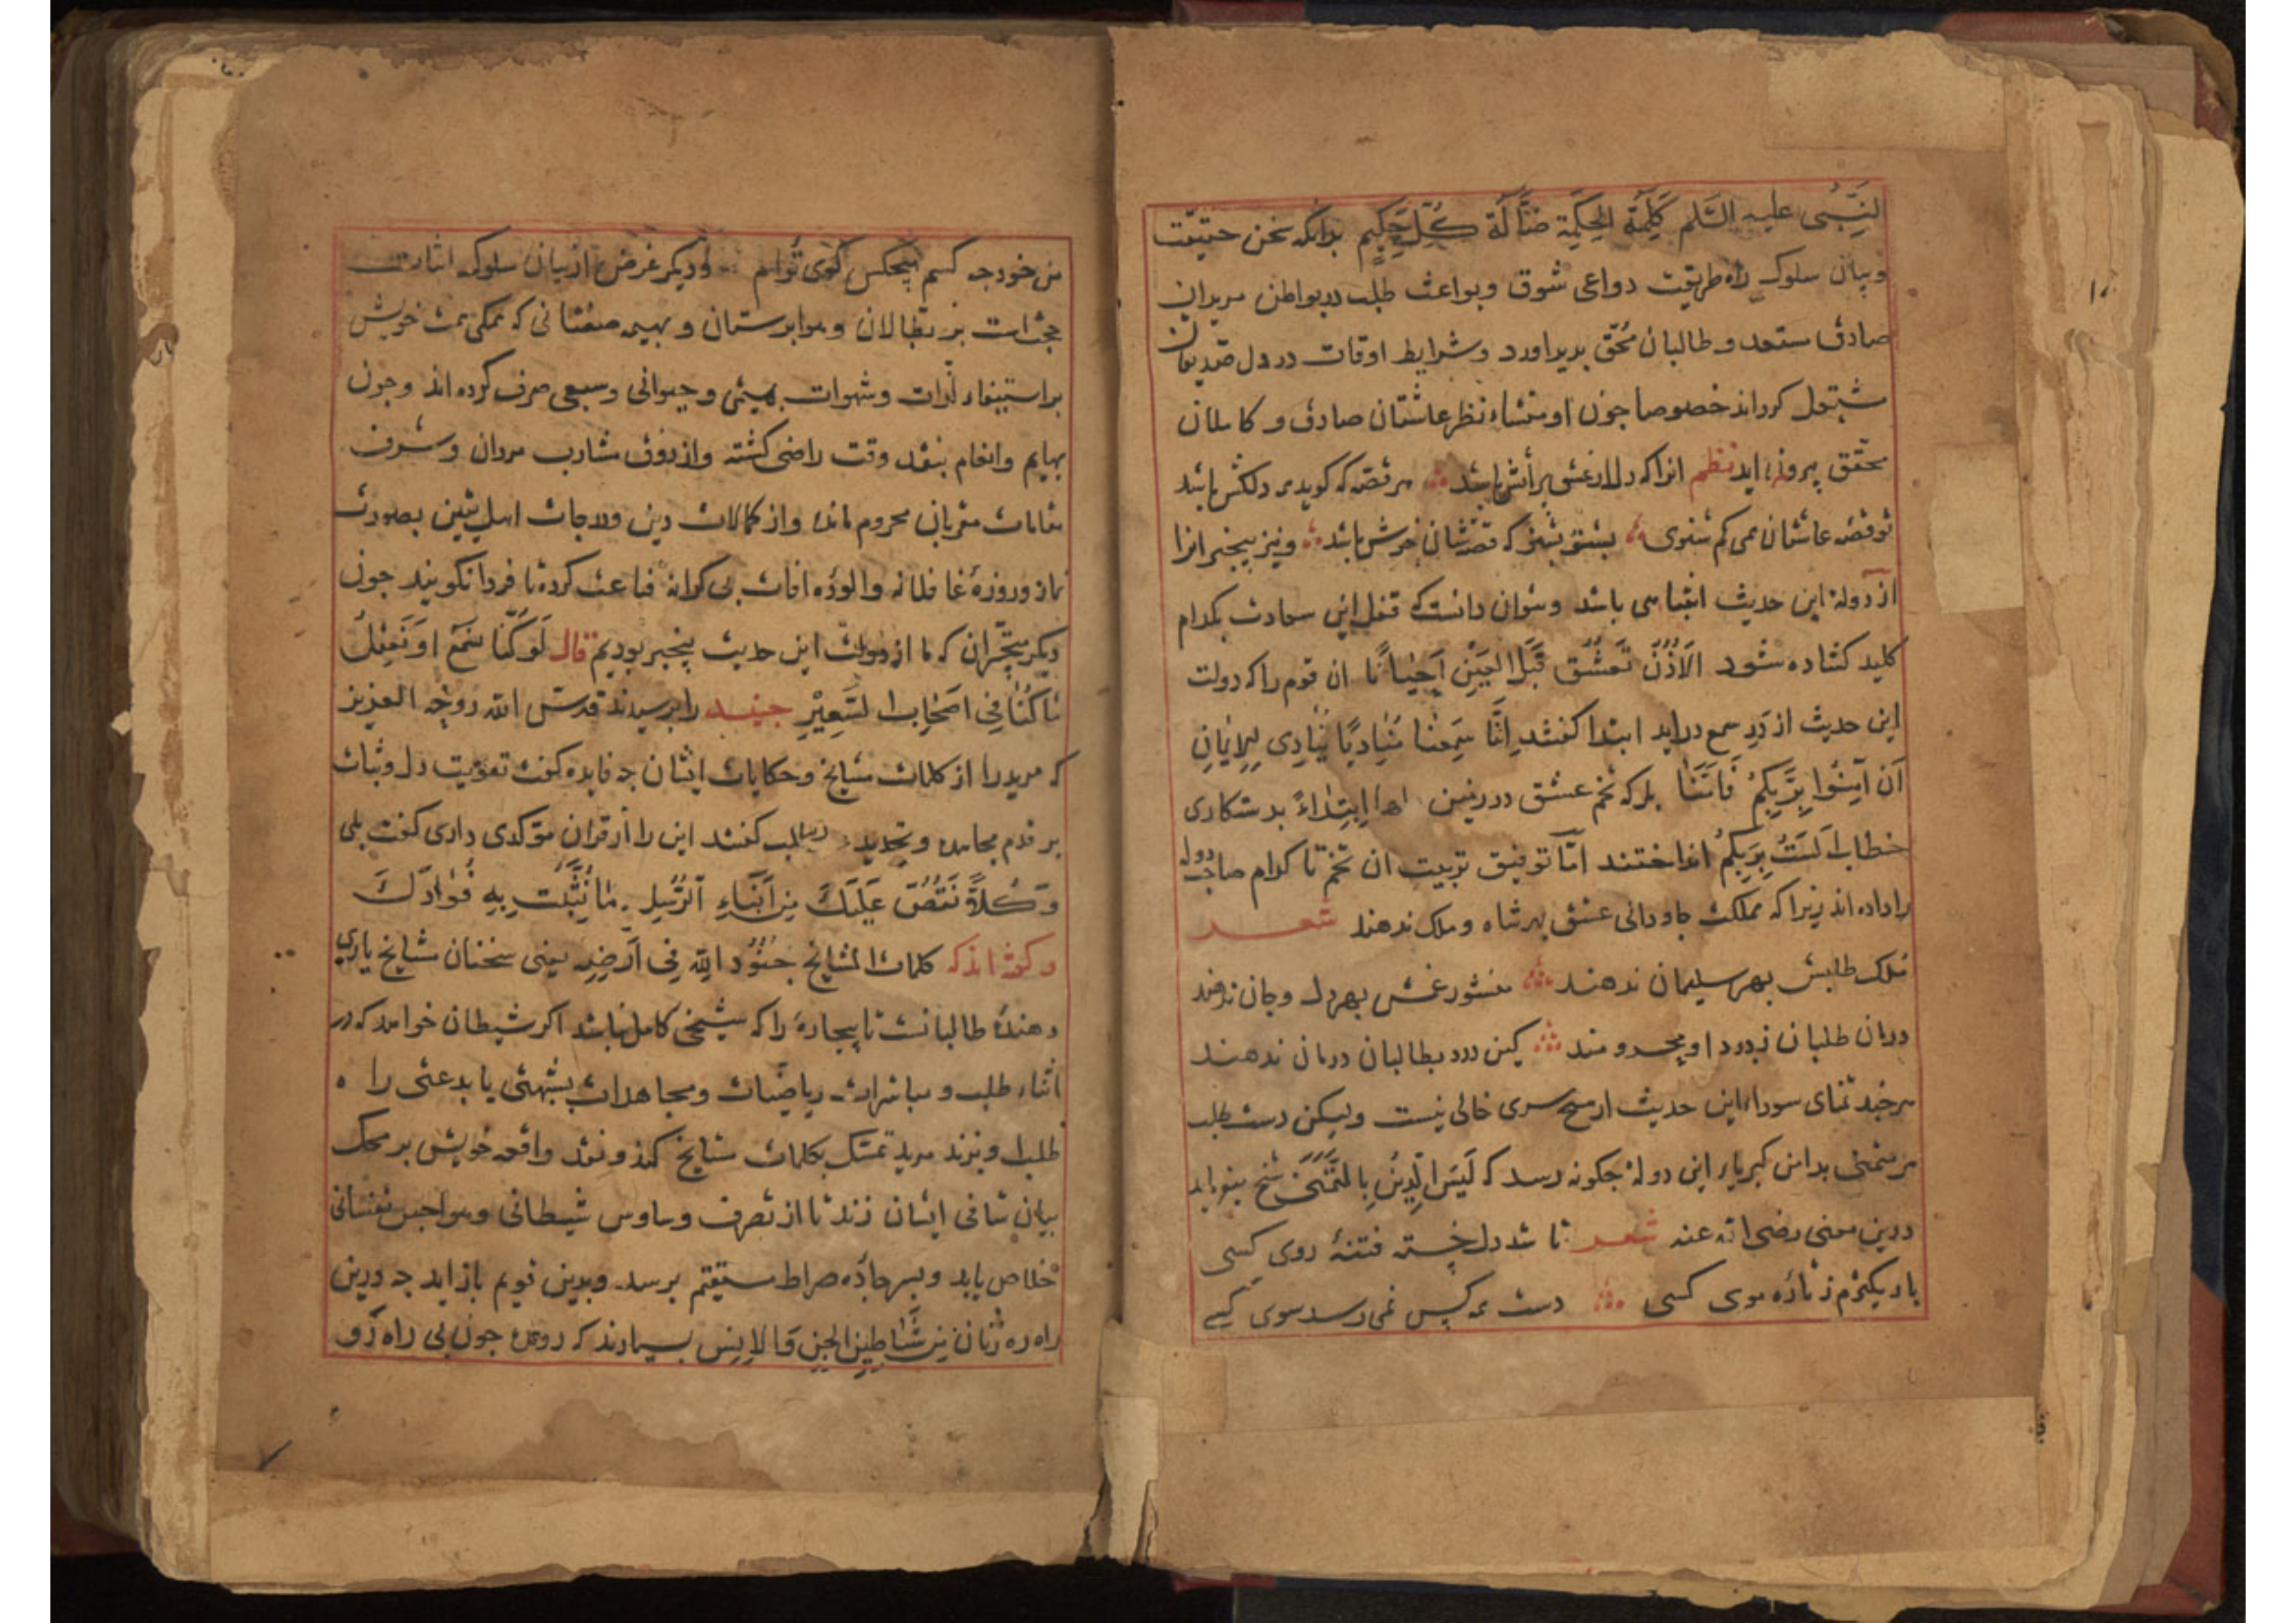 النبی علیه السلم کلمة الحکمة ضالة کل حکیم بدانکه سخن حقیقت
وبیان سلوک راه طریقت دواعی شوق وبواعث طلب در بواطن مریدان
صادق مستعد و طالبان محق بدید اورد و شرایط اوقات در دل صدیقان
مشتعل کرداند خصوصا جون او منشاء نظر عاشقان صادق و کاملان
محقق بیرون اید نظم انرا که دل از عشق بر آتش باشد هر قصه که کوید دلکش باشد
تو قصه عاشقان همی کم شنوی بشنو بشنو که قصه شان خوش باشد ونیز بیخبر انرا
از دولة این حدیث انتباهی باشد وبتوان دانست که قفل این سعادت بکدام
کلید کشاده شود الاذن تعشق قبل العین احیانا ان قوم را که دولت
این حدیث از در سمع دراید ابتدا کفتند اننا سمعنا منادیا ینادی للایمان
ان آمنوا بربکم فامنا بلکه تخم عشق در زمین ابتداء بدستکاری
خطاب الست بربکم انداختند اما توفیق تربیت ان تخم تا کدام صاحب دوله
را داده اند زیرا که مملکت جاودانی عشق بهر شاه و ملک ندهند شعر
ملک طلبش بهر سلیمان ندهند منشور غمش بهر دل وجان ندهند
درمان طلبان ز درد او محرومند کین درد بطالبان درمان ندهند
هرجند تمنای سوداء این حدیث از هیج سری خالی نیست ولیکن دست طلب
هر متمنی بدامن کبریاء این دولة جکونه رسد که لیس الدین بالتمنی شیخ میفرماید
درین معنی رضی الله عنه شعر تا شد دل خسته فتنۀ روی کسی
باریکترم ز تارۀ موی کسی دست همه کس نمی رسد سوی کسی
من خود جه کسم هیجکس کوی توام ودیکر غرض از بیان سلوک اثبات
حجت است بر بطالان و هوابرستان و بهیمه صفتانی که همکی همت خویش
بر استیفاء لذات وشهوات بهیمی و حیوانی وسبعی صرف کرده اند وجون
بهایم وانعام بنقد وقت راضی کشته واز ذوق مشارب مردان وشرف
مقامات مقربان محروم مانده واز کمالات دین ودرجات اهل یقین بصورت
نماز وروزۀ غافلانه والودۀ افات بی کرانه قناعت کرده تا فردا نکویند جون
دیکر متحیران که ما از دولت این حدیث بیخبر بودیم قال لو کنا نسمع او نعقل
ما کنا فی اصحاب السعیر جنید را برسیدند قدس الله روحه العزیز
که مرید را از کلمات مشایخ وحکایات ایشان جه فایده کفت تقویت دل وثبات
بر قدم مجاهده وتجدید طلب کفتند این را از قران مؤکدی داری کفت بلی
وکلا نقص علیک من ابناء الرسل ما نثبت به فؤادک
وکفته اند که کلمات المشایخ جنود الله فی ارضه یعنی سخنان مشایخ یاری
دهندۀ طالبانست تا بیجاره را که شیخی کامل نباشد اکر شیطان خواهد که در
اثناء طلب و مباشرات ریاضات ومجاهدات بشبهتی یا بدعتی راه
طلب او بزند مرید تمسک بکلمات مشایخ کند ونقد واقعه خویش بر محک
بیان شافی ایشان زند تا از تصرف وساوس شیطانی وهواجس نفسانی
خلاص یابد وبسر جاده صراط مستقیم برسد وبدین قویم باز اید جه درین
راه ره زنان من شیاطین الجن والانس بسیارند که روهء جون بی راه رو